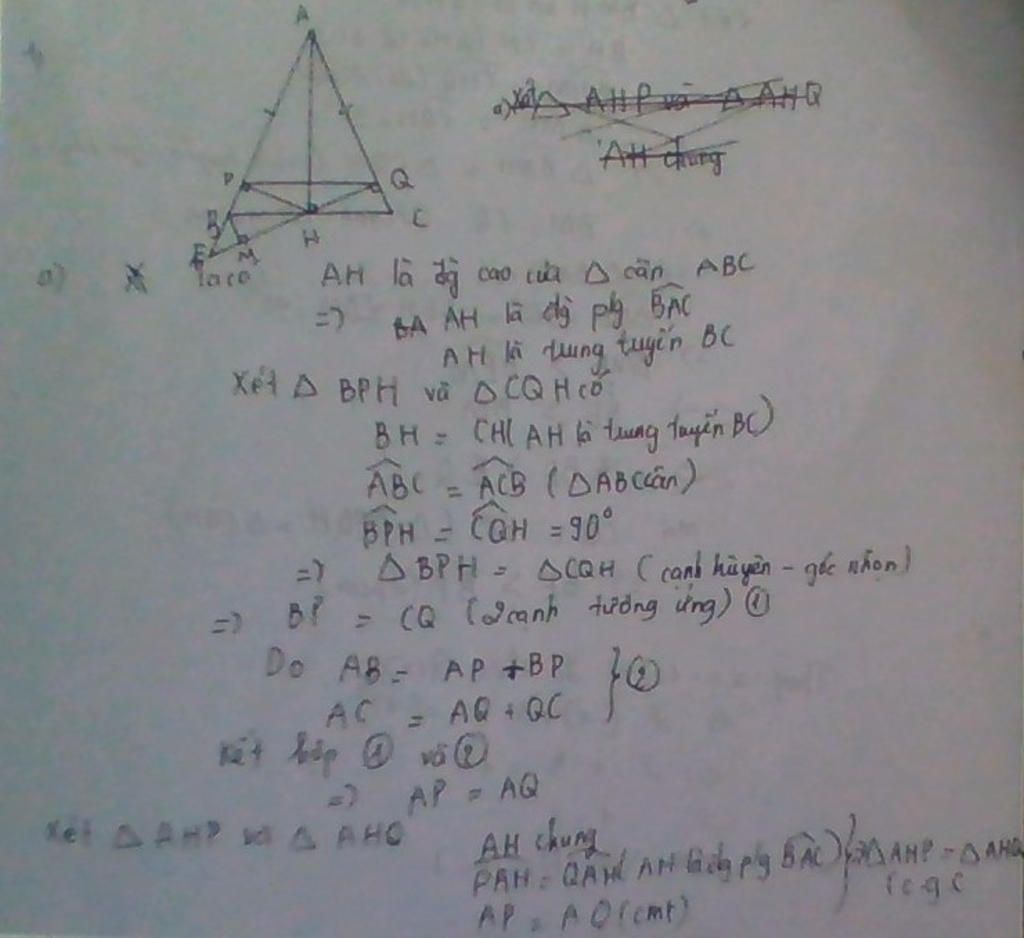 A
a) Xét △ AHP và △ AHQ
AH chung
P Q
B H C
E M
a) Ta có AH là đg cao của △ cân ABC
=> AH là đg p/g BAC
AH là trung tuyến BC
Xét △ BPH và △ CQH có
BH = CH( AH là trung tuyến BC)
ABC = ACB ( △ABC cân)
BPH = CQH = 90°
=> △ BPH = △CQH ( cạnh huyền - góc nhọn)
=> BP = CQ (2 cạnh tương ứng) ①
Do AB = AP + BP } ②
AC = AQ + QC
Kết hợp ① và ②
=> AP = AQ
Xét △ AHP và △ AHQ
AH chung
PAH = QAH( AH là đg p/g BAC) } => △ AHP = △ AHQ
AP = AQ (cmt) (c g c